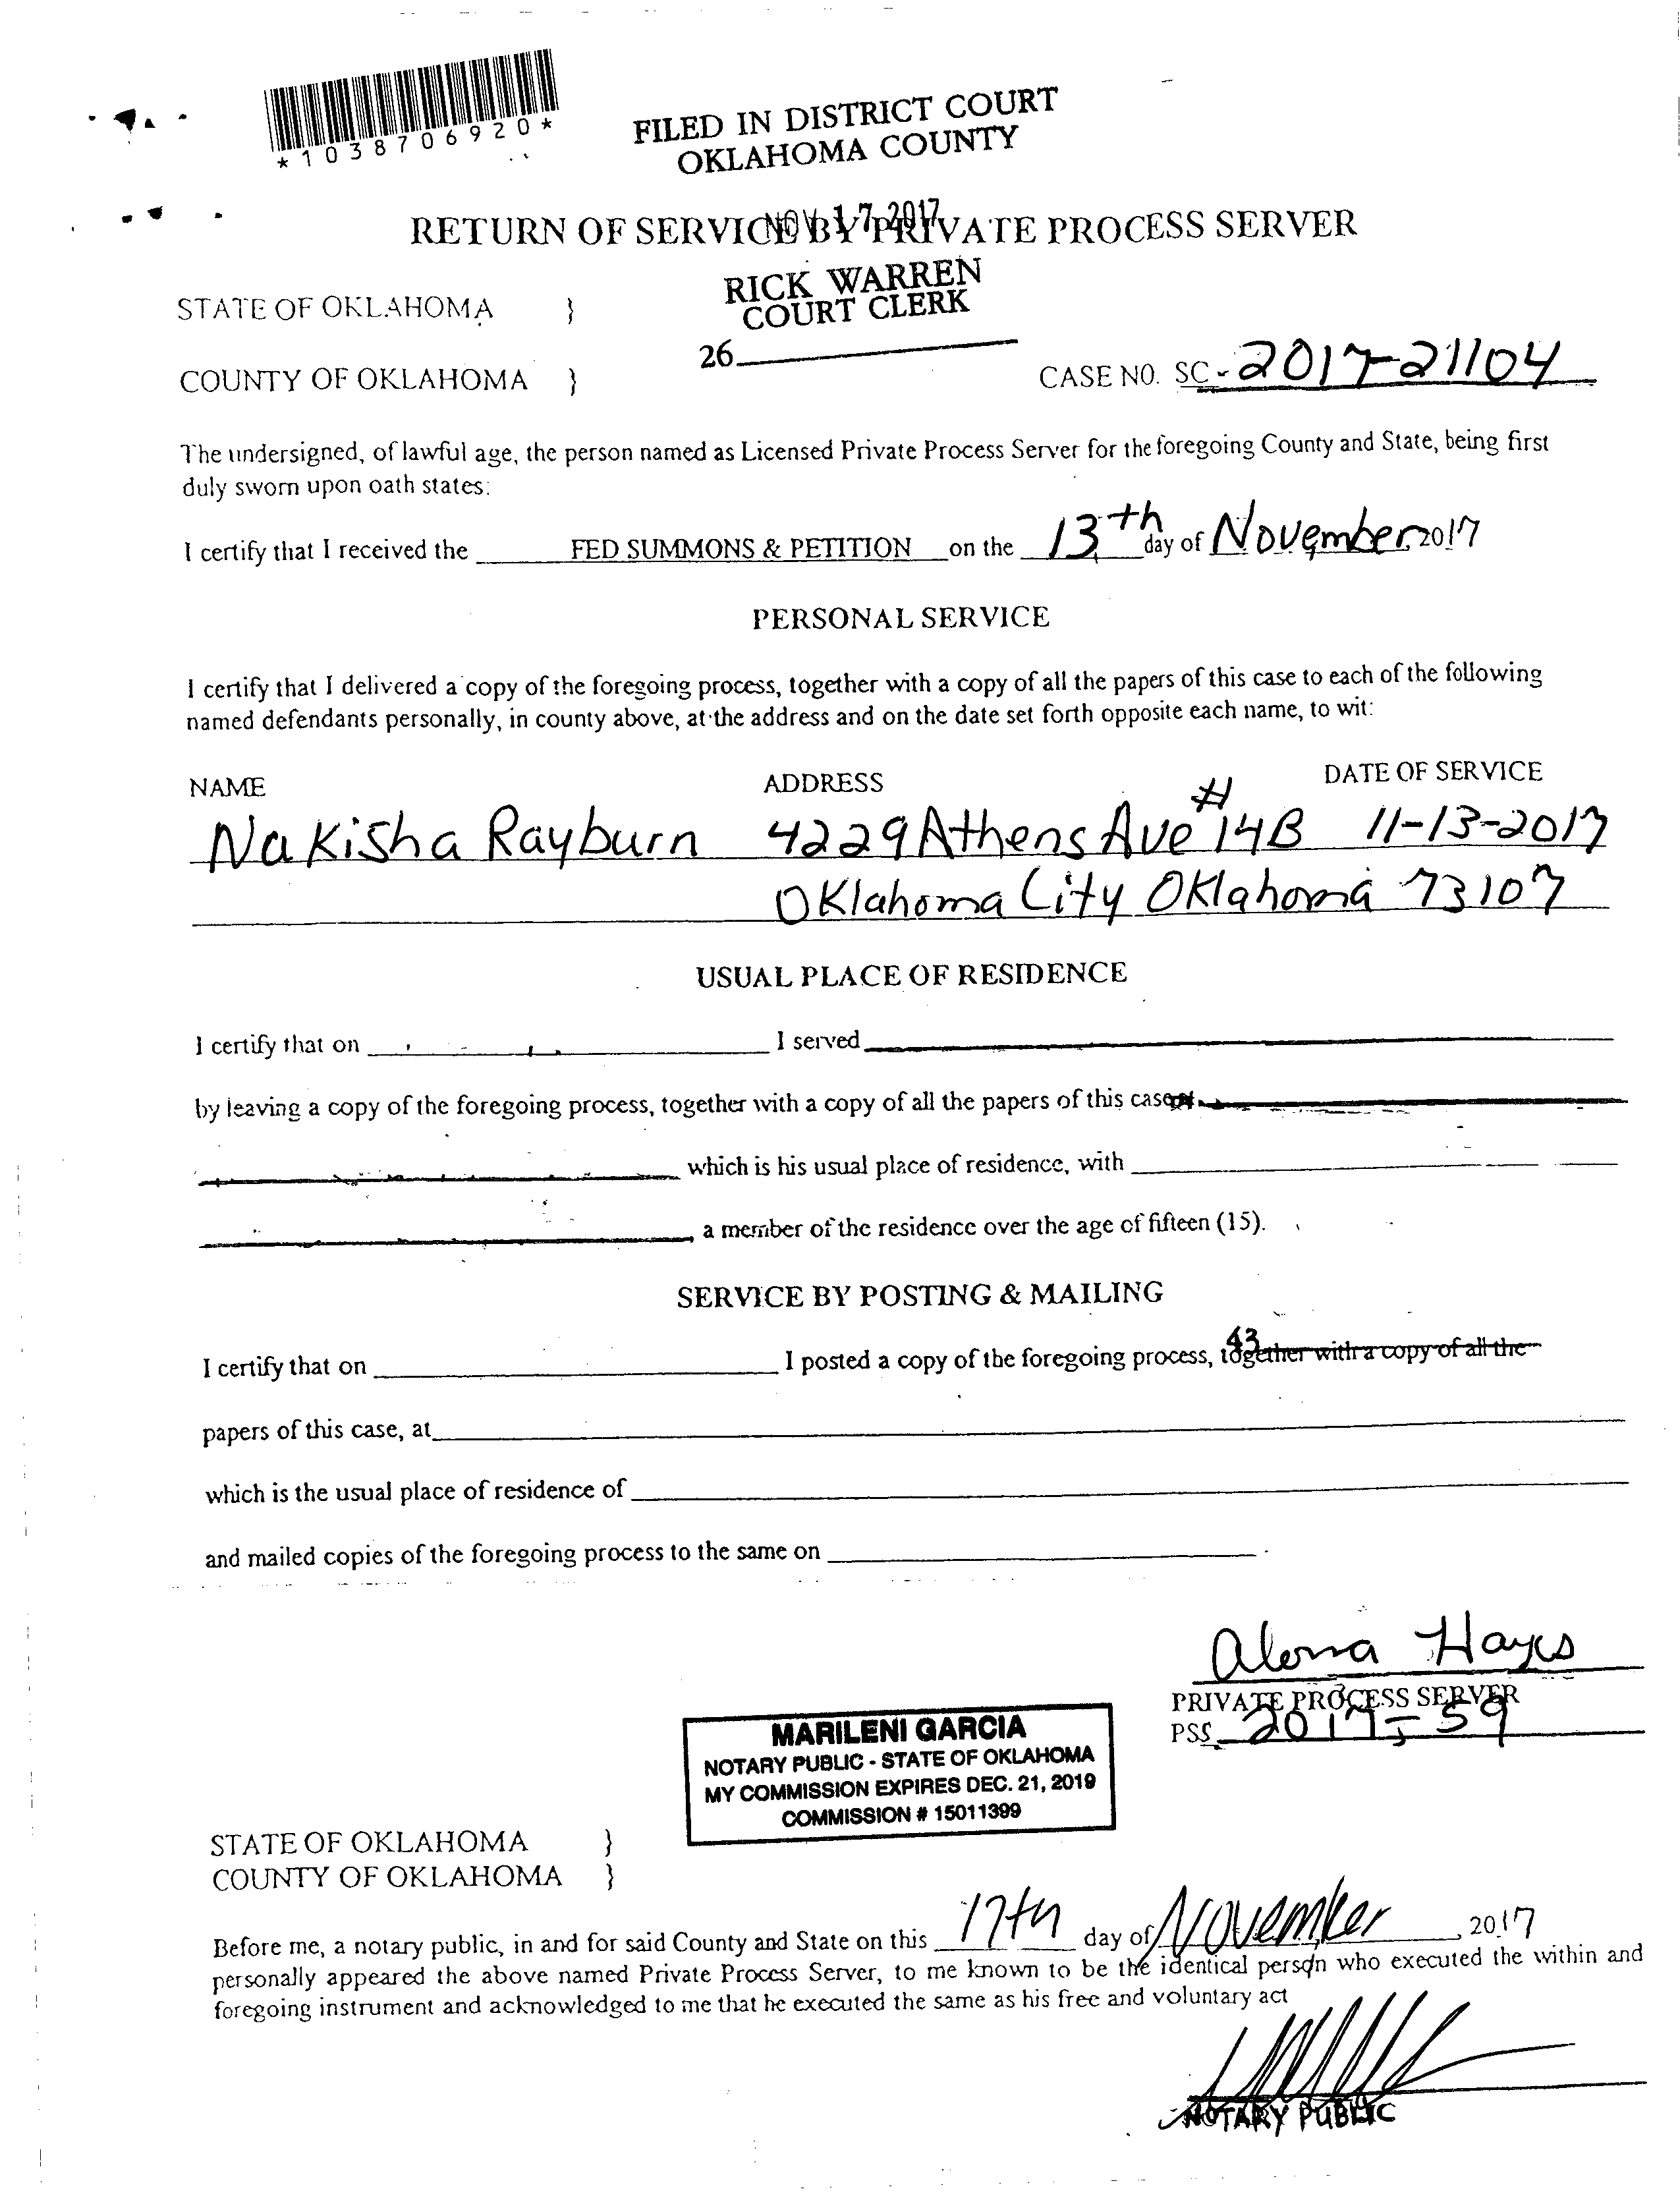 *1038706920*
FILED IN DISTRICT COURT
OKLAHOMA COUNTY
NOV 17 2017
RETURN OF SERVICE BY PRIVATE PROCESS SERVER
RICK WARREN
COURT CLERK
STATE OF OKLAHOMA }
26
COUNTY OF OKLAHOMA } CASE NO. SC-2017-21104
The undersigned, of lawful age, the person named as Licensed Private Process Server for the foregoing County and State, being first
duly sworn upon oath states:
I certify that I received the FED SUMMONS & PETITION on the 13th day of November, 2017
PERSONAL SERVICE
I certify that I delivered a copy of the foregoing process, together with a copy of all the papers of this case to each of the following
named defendants personally, in county above, at the address and on the date set forth opposite each name, to wit:
NAME ADDRESS DATE OF SERVICE
Nakisha Rayburn 4229 Athens Ave #14B 11-13-2017
Oklahoma City Oklahoma 73107
USUAL PLACE OF RESIDENCE
I certify that on I served
by leaving a copy of the foregoing process, together with a copy of all the papers of this case at
which is his usual place of residence, with
, a member of the residence over the age of fifteen (15).
SERVICE BY POSTING & MAILING
43
I certify that on I posted a copy of the foregoing process, together with a copy of all the
papers of this case, at
which is the usual place of residence of
and mailed copies of the foregoing process to the same on .
Hayes
PRIVATE PROCESS SERVER
PSS 2017-59
MARILENI GARCIA
NOTARY PUBLIC - STATE OF OKLAHOMA
MY COMMISSION EXPIRES DEC. 21, 2019
COMMISSION # 15011399
STATE OF OKLAHOMA }
COUNTY OF OKLAHOMA }
Before me, a notary public, in and for said County and State on this 17th day of November, 2017
personally appeared the above named Private Process Server, to me known to be the identical person who executed the within and
foregoing instrument and acknowledged to me that he executed the same as his free and voluntary act
NOTARY PUBLIC